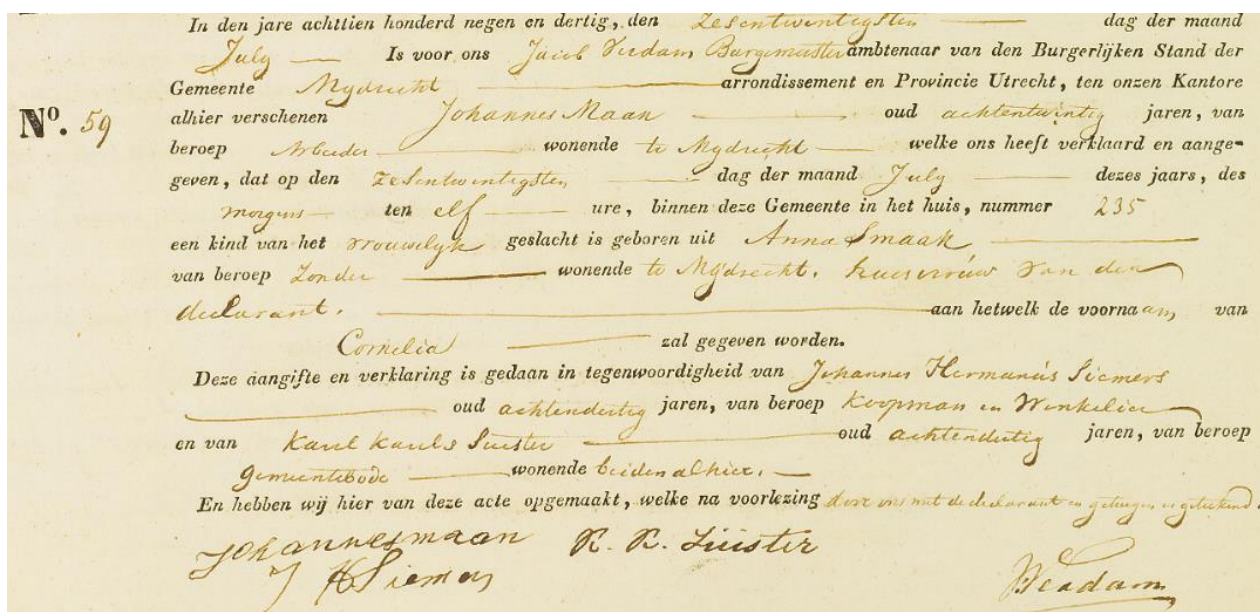 In den jare achttien honderd negen en dertig, den zesentwintigsten dag der maand
July Is voor ons Jacob Verdam Burgemeester ambtenaar van den Burgerlijken Stand der
Gemeente Mydrecht arrondissement en Provincie Utrecht, ten onzen Kantore
No. 59 alhier verschenen Johannes Maan oud achtentwintig jaren, van
beroep Arbeider wonende te Mydrecht welke ons heeft verklaard en aange-
geven, dat op den zesentwintigsten dag der maand July dezes jaars, des
morgens ten elf ure, binnen deze Gemeente in het huis, nummer 235
een kind van het vrouwelyk geslacht is geboren uit Anna Smaak
van beroep Zonder wonende te Mydrecht. huisvrouw van den
declarant. aan hetwelk de voornaam, van
Cornelia zal gegeven worden.
Deze aangifte en verklaring is gedaan in tegenwoordigheid van Johannes Hermanus Siemers
oud achtendertig jaren, van beroep Koopman en Winkelier
en van Karel Karels Luister oud achtendertig jaren, van beroep
Gemeentebode wonende beiden alhier.
En hebben wij hier van deze acte opgemaakt, welke na voorlezing door ons met de declarant en getuigen is geteekend
Johannes maan K. K. Luister
J H Siemers Verdam